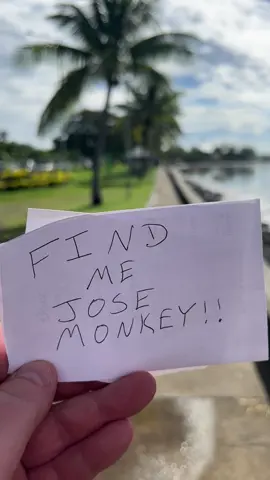 FIND
ME
JOSE
MONKEY!!